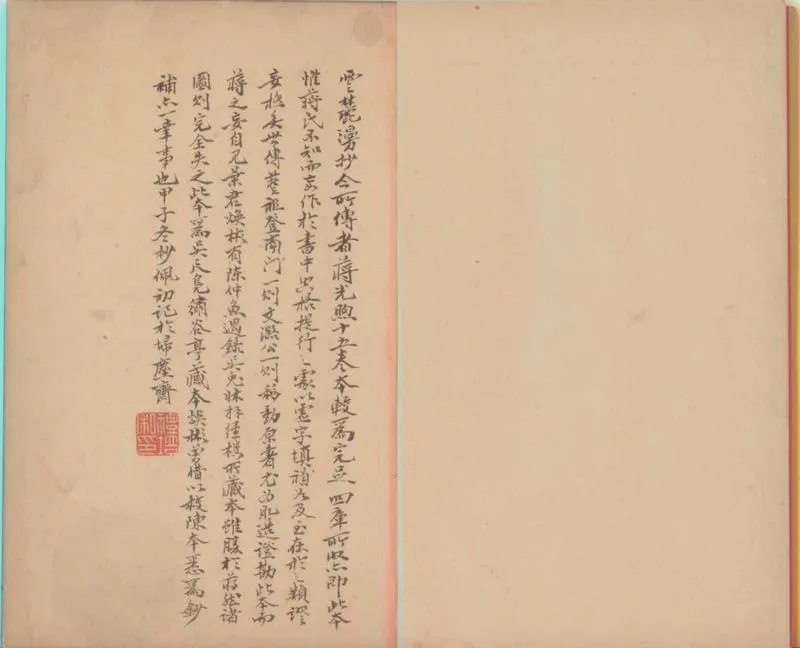 雲麓漫抄今所傳者蔣光煦十五卷本較爲完足四庫所收亦即此本
惟蔣氏不知而妄作於書中空格提行之處以虛字填補若及至在於之類謬
妄極矣世傳藝祖登南門一則文潞公一則移動原書尤為肊造證勘此本而
蔣之妄自見葉君煥彬有陳仲魚過錄吳兔牀拜經樓所藏本雖勝於蔣然諸
圖則完全失之此本爲吳氏繡谷亭藏本煥彬曾借以校陳本悉爲鈔
補亦一幸事也甲子冬杪佩初記於埽塵齋
禮培私印